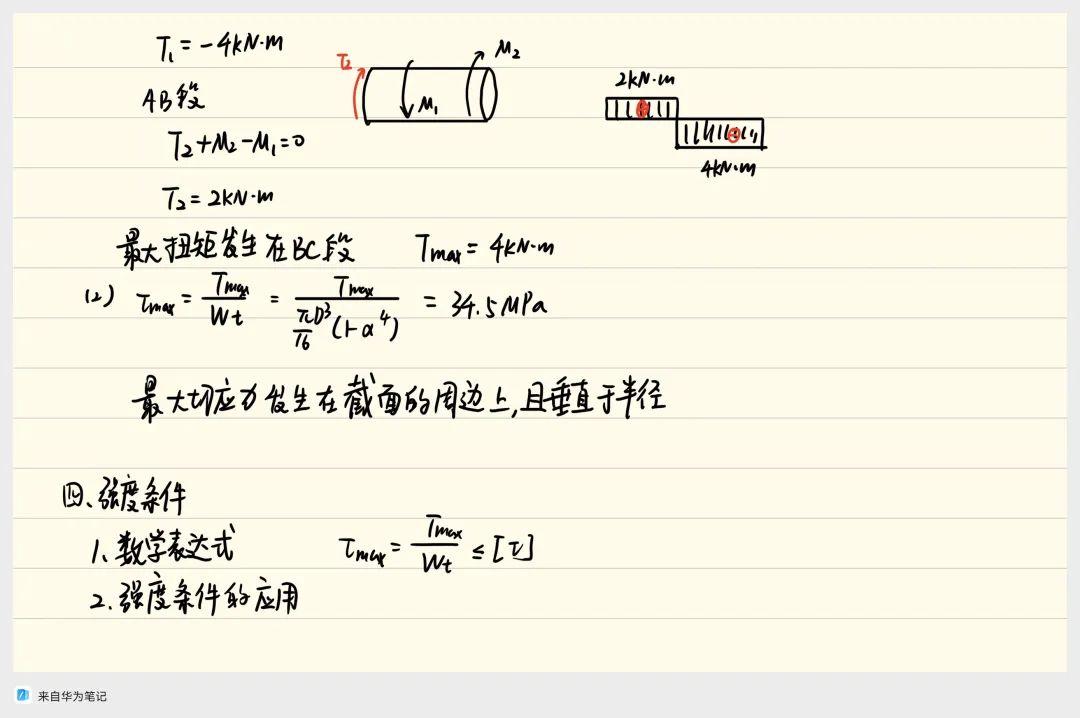 T₁=-4kN·m
AB段
T₂+M₂-M₁=0
T₂=2kN·m
T₂
M₁
M₂
2kN·m
⊕
⊖
4kN·m
最大扭矩发生在BC段 Tmax=4kN·m
(2) τmax=Tmax/Wt=Tmax/(π/16 D³(1-α⁴))=34.5MPa
最大切应力发生在截面的周边上,且垂直于半径
四、强度条件
1、数学表达式 τmax=Tmax/Wt≤[τ]
2.强度条件的应用
来自华为笔记